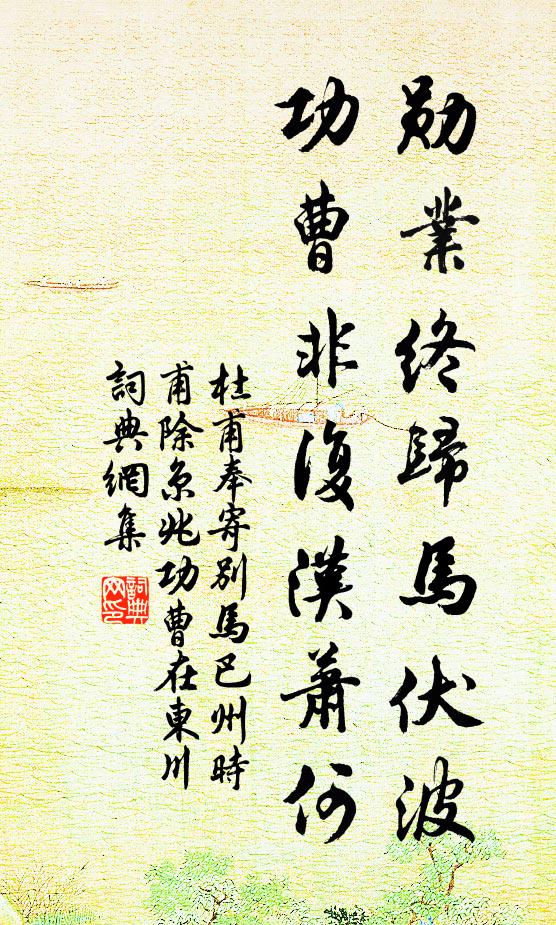 勛業終歸馬伏波
功曹非復漢蕭何
杜甫奉寄別馬巴州時
甫除京兆功曹在東川
詞典網集
詞典
网印